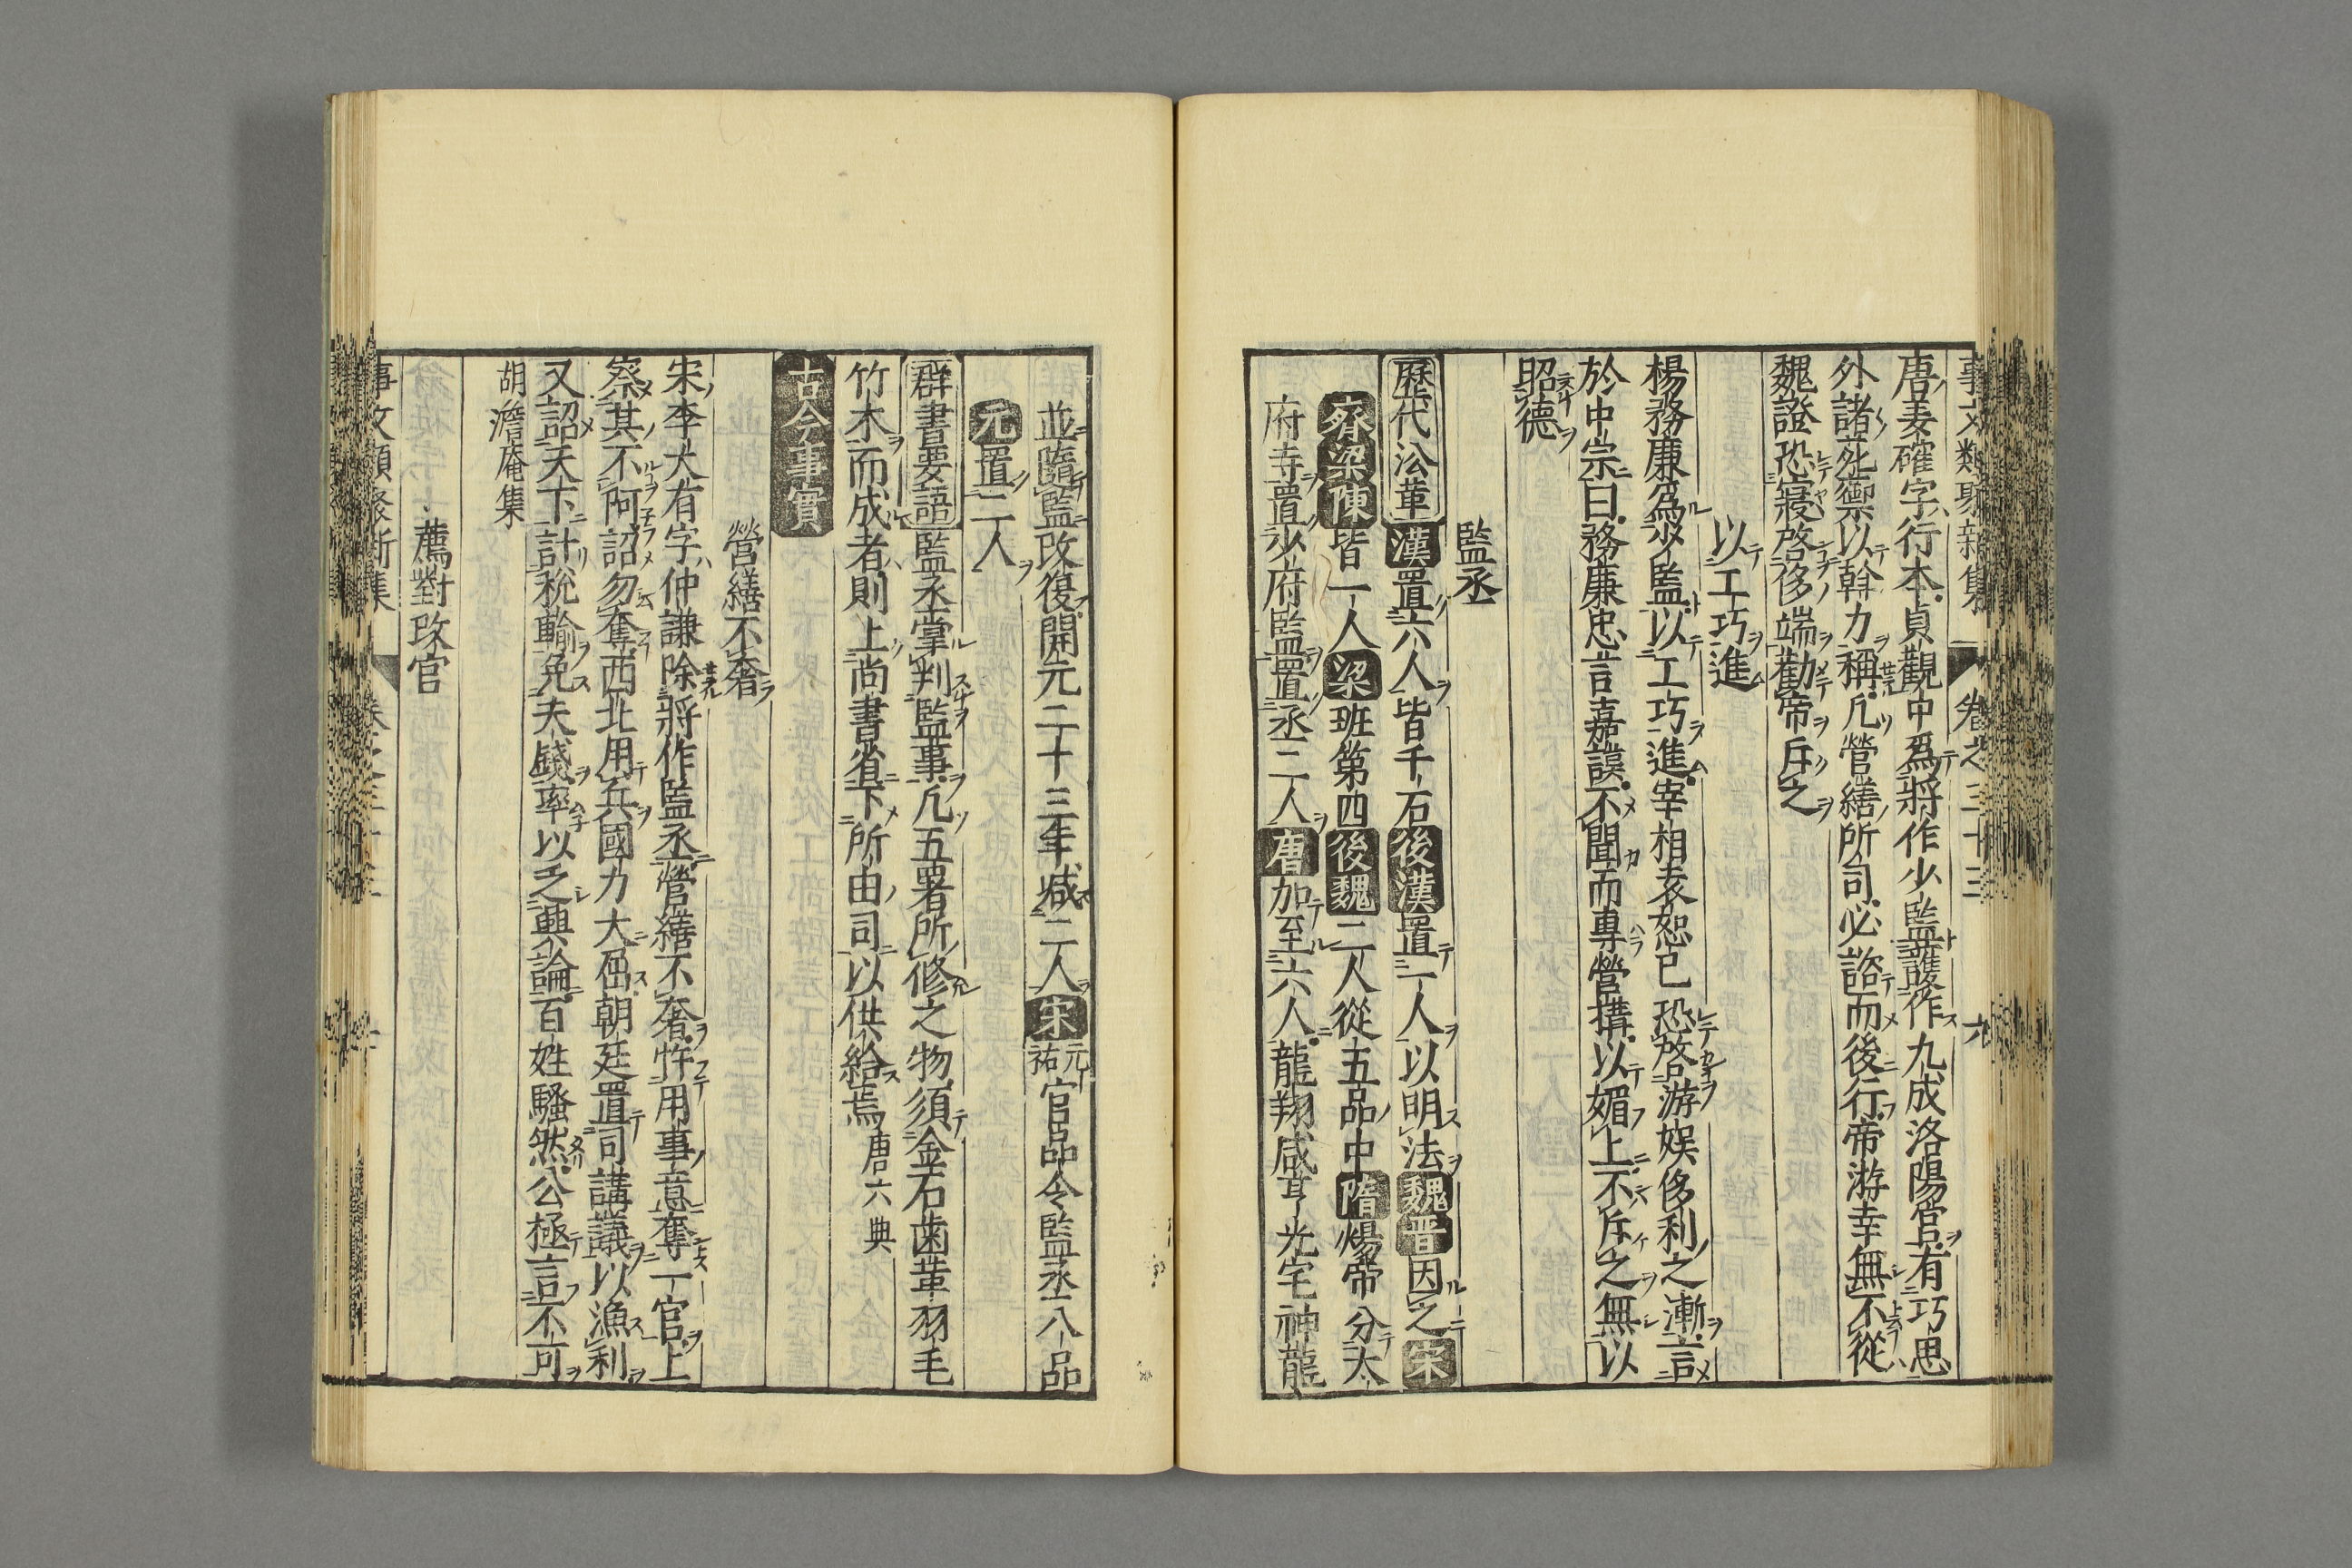 事文類聚新集 卷之三十三 九
唐姜確字行本貞觀中爲將作少監護作九成洛陽宮有巧思
外諸苑禦以幹力稱凡營繕所司必諮而後行帝游幸無不從
魏證恐寢啓侈端勸帝斥之
以工巧進
楊務廉爲少監以工巧進宰相袁恕已恐啓游娯侈利之漸言
於中宗曰務廉忠言嘉謨不聞而專營搆以媚上不斥之無以
昭德
監丞
歷代沿革 漢置六人皆千石後漢置一人以明法魏晋因之宋
齊梁陳皆一人梁班第四後魏二人從五品中隋煬帝分太
府寺置少府監置丞二人唐加至六人龍翔咸亨光宅神龍
並隨監改復開元二十三年減二人宋元祐官品令監丞八品
元置二人
群書要語 監丞掌判監事凡五署所修之物須金石齒革羽毛
竹木而成者則上尚書省下所由司以供給焉唐六典
古今事實
營繕不奢
宋李大有字仲謙除將作監丞營繕不奢忤用事意奪一官上
察其不阿詔勿奪西北用兵國力大屈朝廷置司講議以漁利
又詔天下計稅輸免夫錢率以乏興論百姓騷然公極言不可
胡澹庵集
薦對改官
事文類聚新集